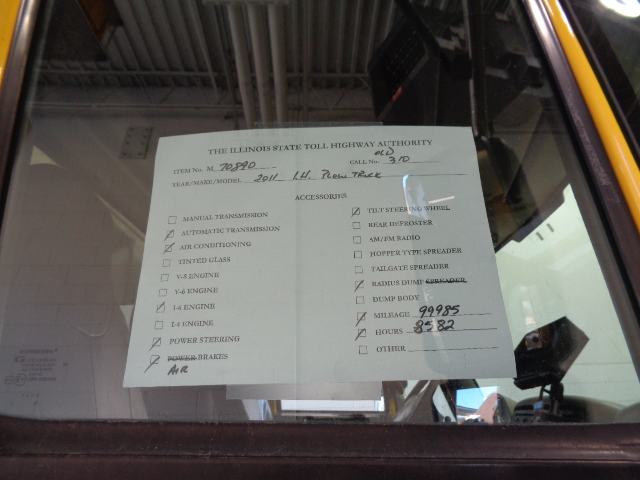 THE ILLINOIS STATE TOLL HIGHWAY AUTHORITY
ITEM No. M 70890
OLD
CALL No. 310
YEAR/MAKE/MODEL 2011 I.H. PLOW TRUCK
ACCESSORIES
MANUAL TRANSMISSION
AUTOMATIC TRANSMISSION
AIR CONDITIONING
TINTED GLASS
V-8 ENGINE
V-6 ENGINE
I-6 ENGINE
I-4 ENGINE
POWER STEERING
POWER BRAKES
AIR
TILT STEERING WHEEL
REAR DEFROSTER
AM/FM RADIO
HOPPER TYPE SPREADER
TAILGATE SPREADER
RADIUS DUMP SPREADER
DUMP BODY
MILEAGE 99985
HOURS 8582
OTHER